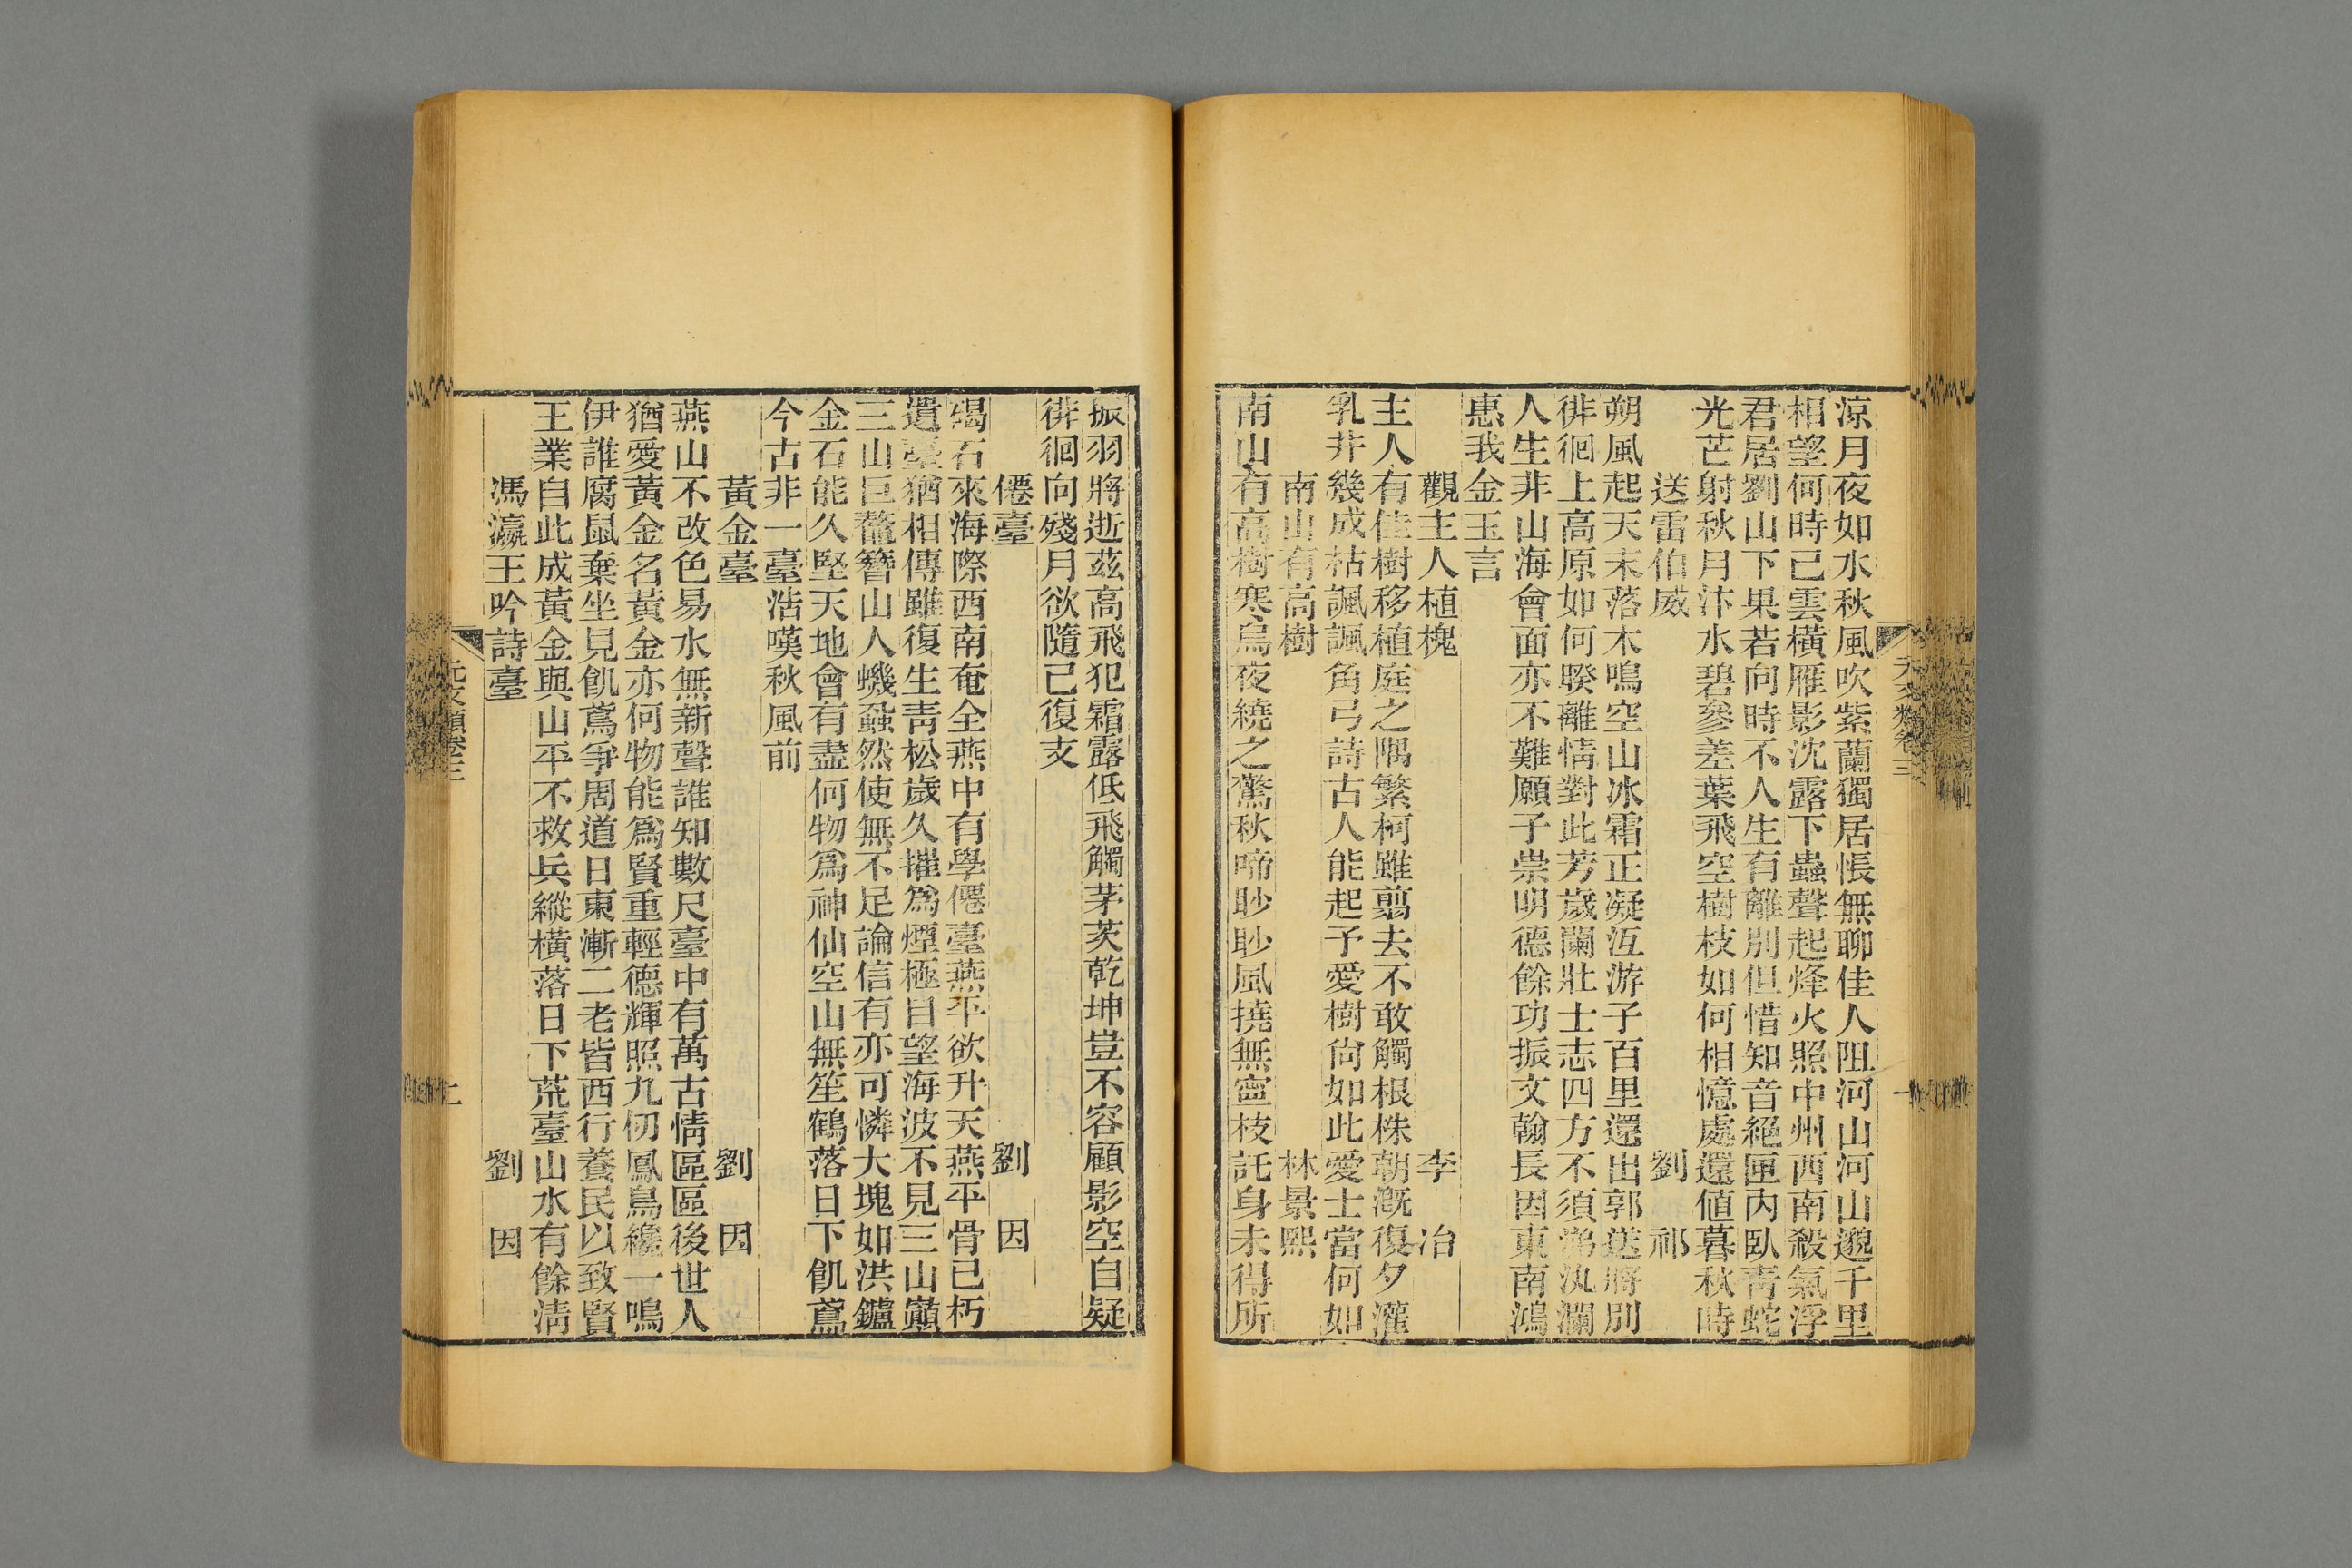 涼月夜如水秋風吹紫蘭獨居悵無聊佳人阻河山河山邈千里
相望何時已雲橫雁影沈露下蟲聲起烽火照中州西南殺氣浮
君居劉山下果若向時不人生有離別但惜知音絕匣內臥靑蛇
光芒射秋月汴水碧參差葉飛空樹枝如何相憶處還値暮秋時
送雷伯威 劉祁
朔風起天末落木鳴空山冰霜正凝沍游子百里還出郭送將別
徘徊上高原如何暌離情對此芳歲闌壯士志四方不須涕汍瀾
人生非山海會面亦不難願子崇明德餘功振文翰長因東南鴻
惠我金玉言
觀主人植槐 李冶
主人有佳樹移植庭之隅繁柯雖翦去不敢觸根株朝漑復夕灌
乳井幾成枯諷諷角弓詩古人能起予愛樹尙如此愛士當何如
南山有高樹 林景熙
南山有高樹寒烏夜繞之驚秋啼眇眇風撓無寧枝託身未得所
振羽將逝茲高飛犯霜露低飛觸茅茨乾坤豈不容顧影空自疑
徘徊向殘月欲隨已復支
僊臺 劉因
碣石來海際西南奄全燕中有學僊臺燕平欲升天燕平骨已朽
遺臺猶相傳雖復生靑松歲久摧爲煙極目望海波不見三山巓
三山巨鼇簪山人蟣蝨然使無不足論信有亦可憐大塊如洪鑪
金石能久堅天地會有盡何物爲神仙空山無笙鶴落日下飢鳶
今古非一臺浩嘆秋風前
黃金臺 劉因
燕山不改色易水無新聲誰知數尺臺中有萬古情區區後世人
猶愛黃金名黃金亦何物能爲賢重輕德輝照九仞鳳鳥纔一鳴
伊誰腐鼠棄坐見飢鳶爭周道日東漸二老皆西行養民以致賢
王業自此成黃金與山平不救兵縱橫落日下荒臺山水有餘淸
馮瀛王吟詩臺 劉因
元文類卷三